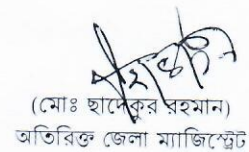 (মোঃ ছাদেকুর রহমান)
অতিরিক্ত জেলা ম্যাজিস্ট্রেট